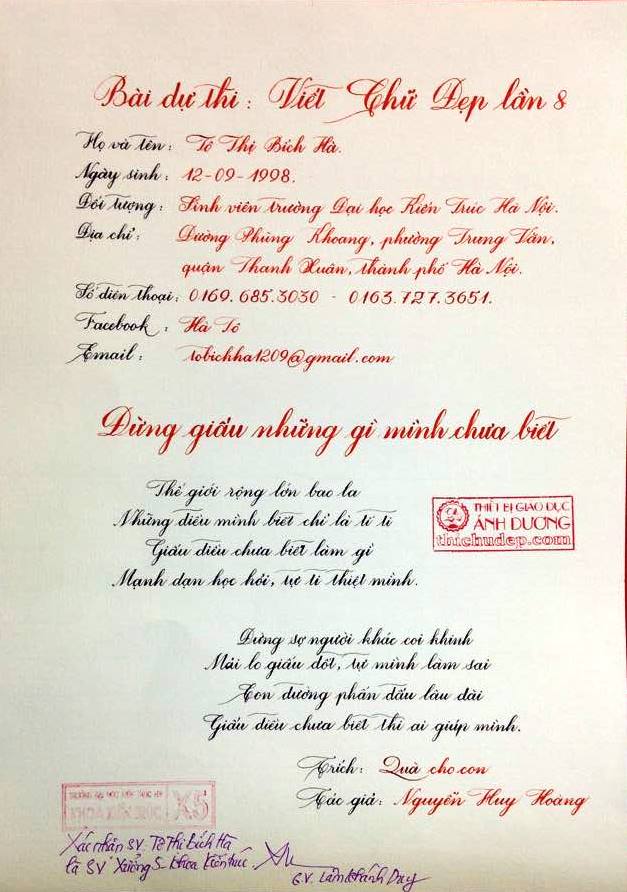 Bài dự thi: Viết Chữ Đẹp lần 8
Họ và tên: Tô Thị Bích Hà.
Ngày sinh: 12-09-1998.
Đối tượng: Sinh viên trường Đại học Kiến Trúc Hà Nội.
Địa chỉ: Đường Phùng Khoang, phường Trung Văn,
quận Thanh Xuân, thành phố Hà Nội.
Số điện thoại: 0169.685.3030 - 0163.727.3651.
Facebook: Hà Tô
Email: tobichha1209@gmail.com
Đừng giấu những gì mình chưa biết
Thế giới rộng lớn bao la
Những điều mình biết chỉ là tí ti
Giấu điều chưa biết làm gì
Mạnh dạn học hỏi, tự ti thiệt mình.
THIẾT BỊ GIÁO DỤC
ÁNH DƯƠNG
thichudep.com
Đừng sợ người khác coi khinh
Mải lo giấu dốt, tự mình làm sai
Con đường phấn đấu lâu dài
Giấu điều chưa biết thì ai giúp mình.
Trích: Quà cho con
Tác giả: Nguyễn Huy Hoàng
KHOA KIẾN TRÚC X5
Xác nhận SV. Tô Thị Bích Hà
là SV Xưởng 5 Khoa Kiến trúc.
G.V. Lâm Khánh Duy